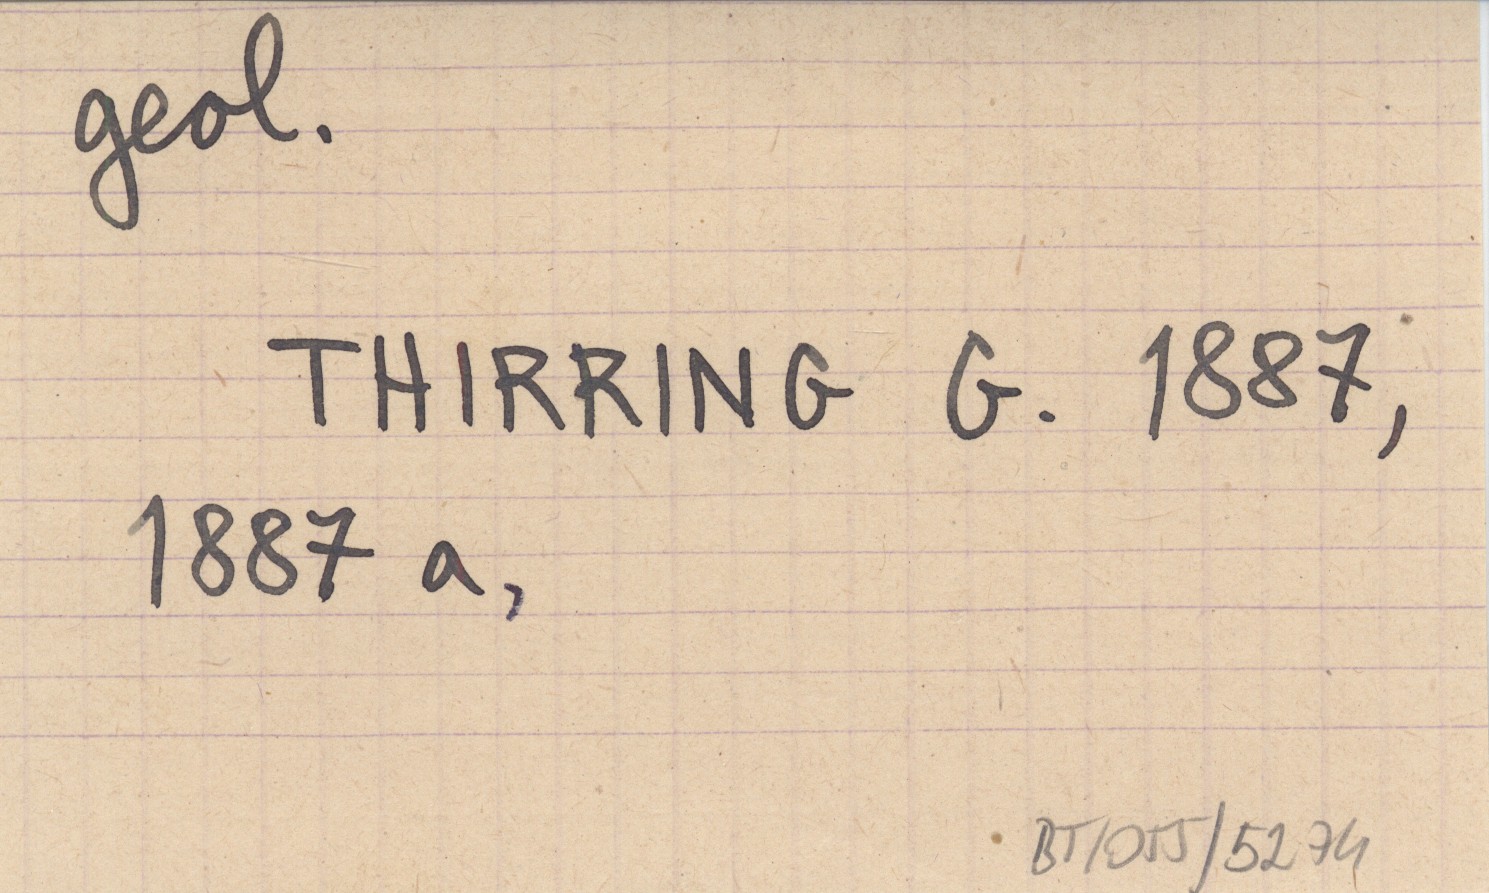 geol.
THIRRING G. 1887,
1887 a,
BT/OJJ/5274